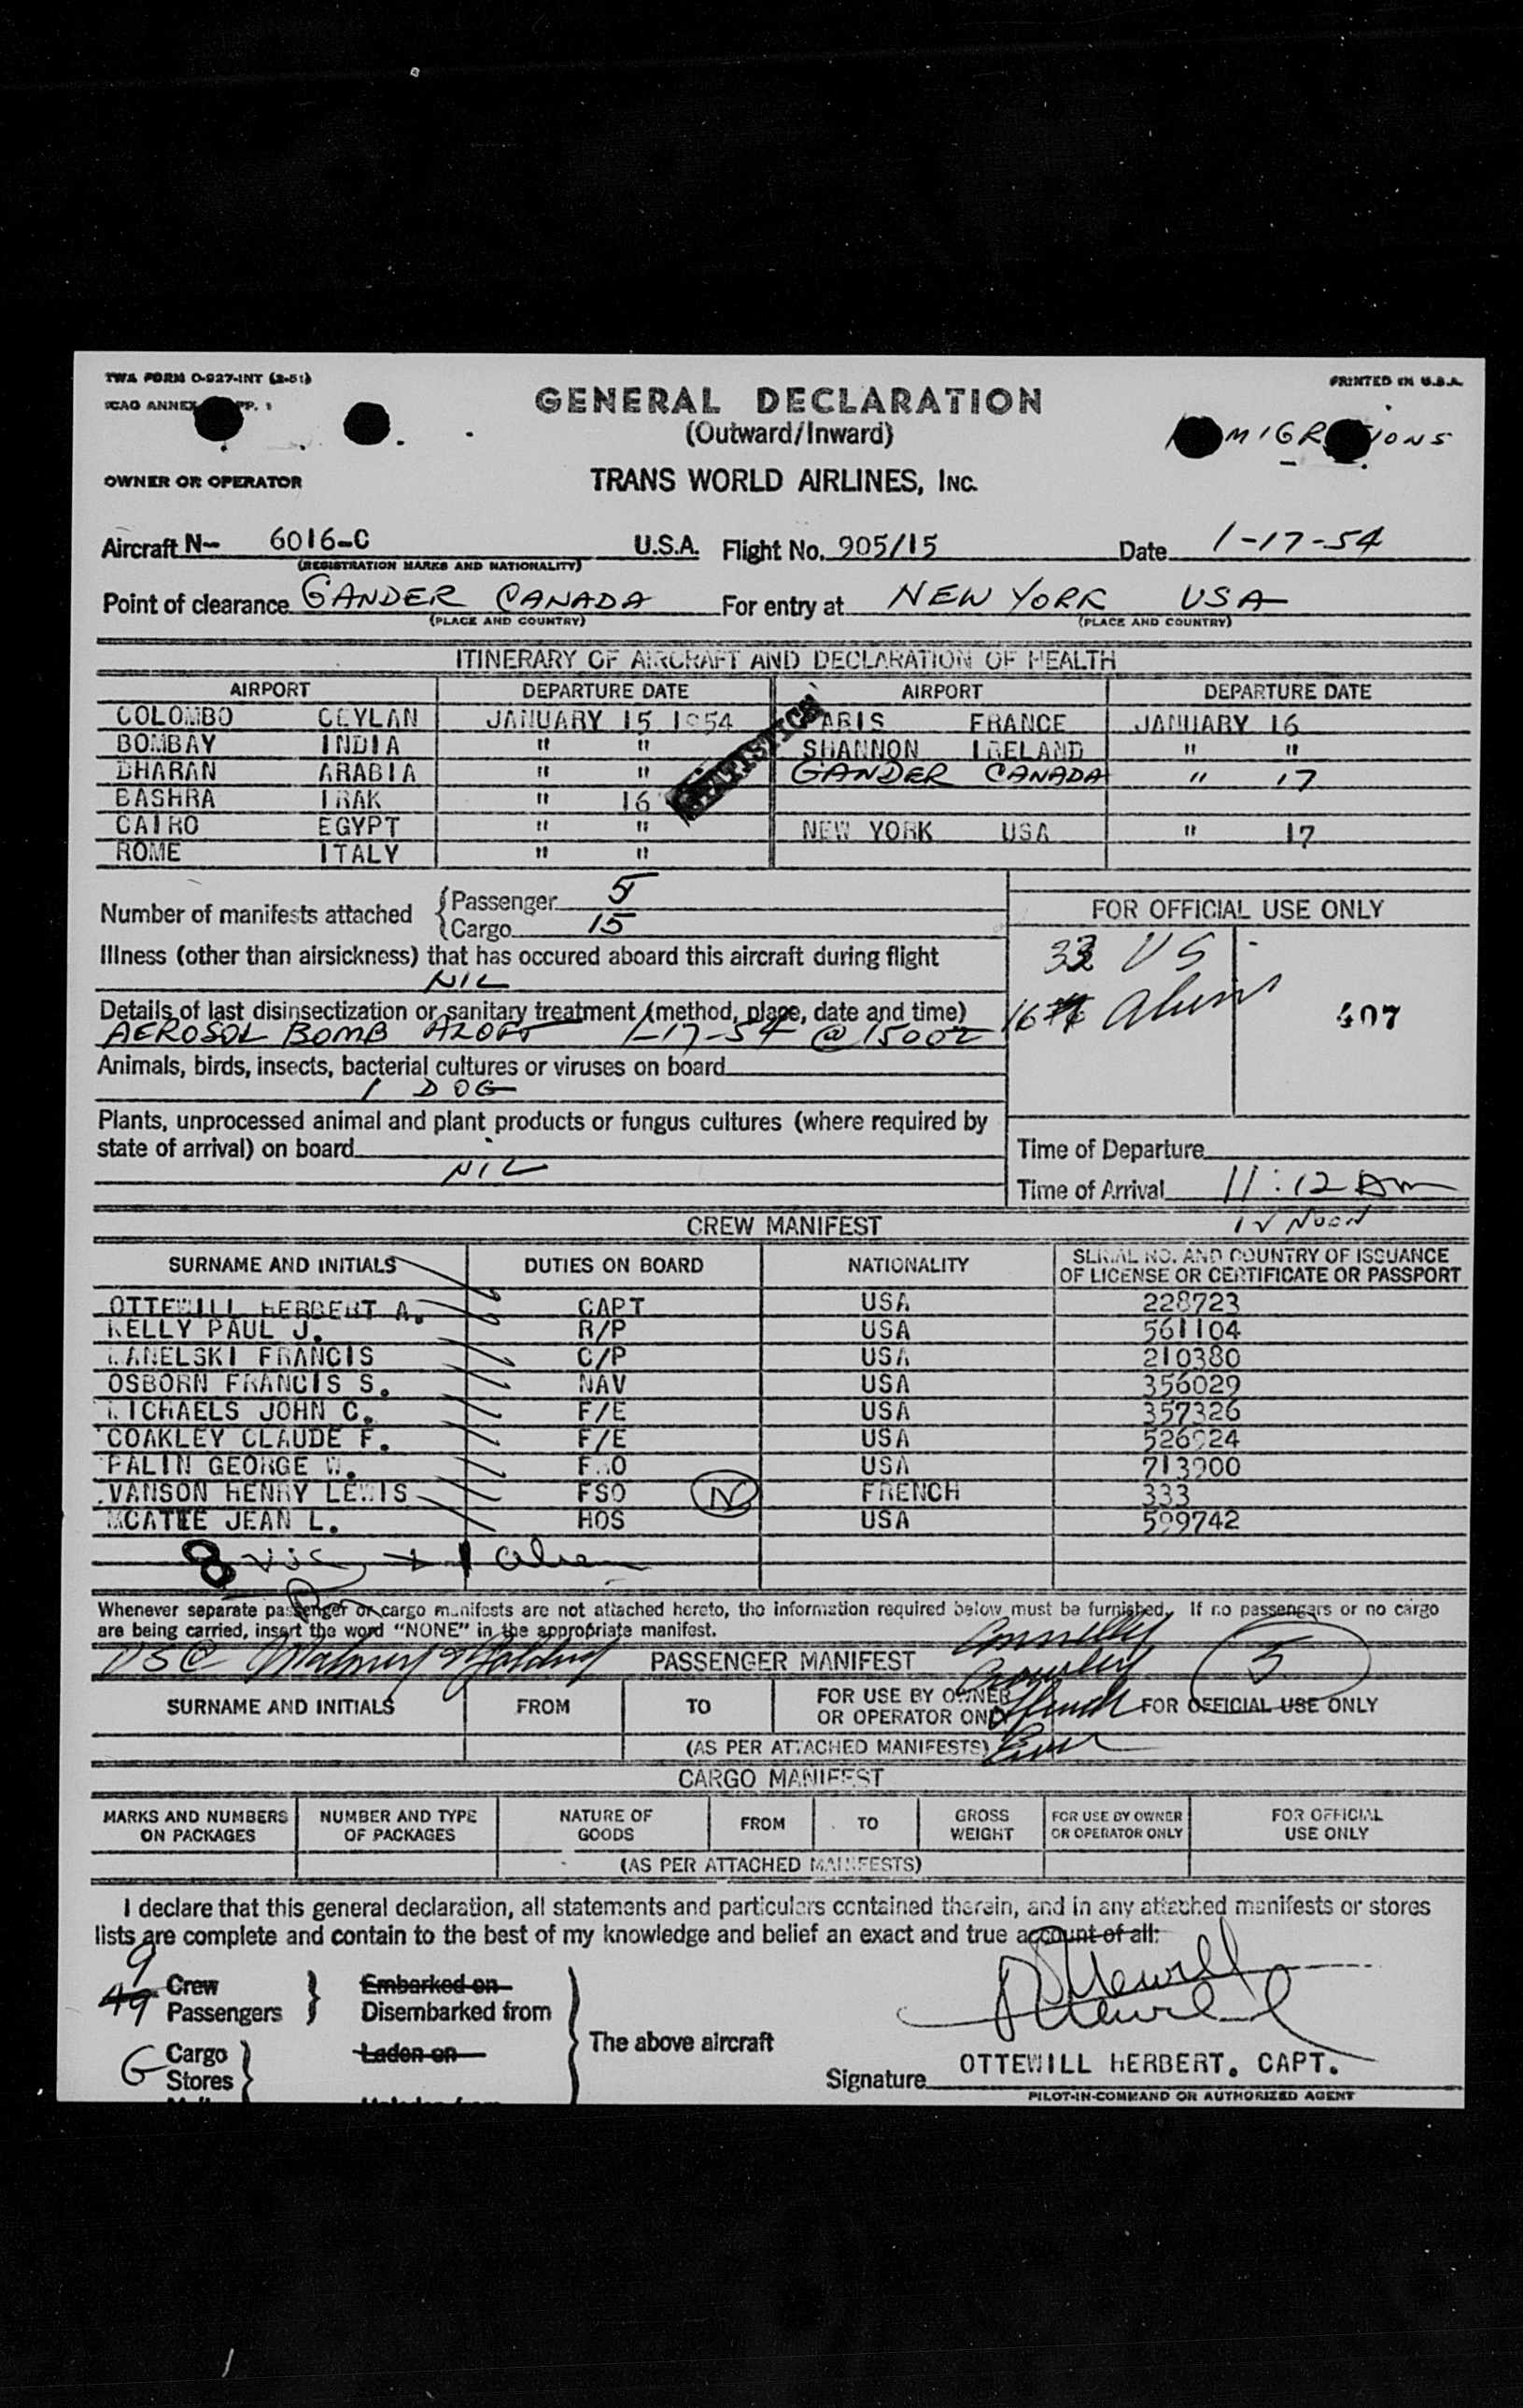 TWA FORM O-927-INT (2-51)
PRINTED IN U.S.A.
ICAO ANNEX PP. 1
GENERAL DECLARATION
(Outward/Inward)
OWNER OR OPERATOR
TRANS WORLD AIRLINES, INC.
Aircraft N- 6016-C U.S.A. Flight No. 905/15 Date 1-17-54
(REGISTRATION MARKS AND NATIONALITY)
Point of clearance GANDER CANADA For entry at NEW YORK USA
(PLACE AND COUNTRY) (PLACE AND COUNTRY)
ITINERARY OF AIRCRAFT AND DECLARATION OF HEALTH
AIRPORT DEPARTURE DATE AIRPORT DEPARTURE DATE
COLOMBO CEYLAN JANUARY 15 1954 ARIS FRANCE JANUARY 16
BOMBAY INDIA " " SHANNON IRELAND " "
DHARAN ARABIA " " GANDER CANADA " 17
BASHRA IRAK " 16
CAIRO EGYPT " " NEW YORK USA " 17
ROME ITALY " "
STATISTICS
Number of manifests attached { Passenger 5
Cargo 15
FOR OFFICIAL USE ONLY
Illness (other than airsickness) that has occured aboard this aircraft during flight
NIL
33 US
Details of last disinsectization or sanitary treatment (method, place, date and time)
AEROSOL BOMB ALOFT 1-17-54 @ 1500Z
16 Aliens
407
Animals, birds, insects, bacterial cultures or viruses on board
1 DOG
Plants, unprocessed animal and plant products or fungus cultures (where required by
state of arrival) on board
NIL
Time of Departure
Time of Arrival 11:12 Am
12 NOON
CREW MANIFEST
SURNAME AND INITIALS DUTIES ON BOARD NATIONALITY SERIAL NO. AND COUNTRY OF ISSUANCE
OF LICENSE OR CERTIFICATE OR PASSPORT
OTTEWILL HERBERT A. CAPT USA 228723
KELLY PAUL J. R/P USA 561104
ANELSKI FRANCIS C/P USA 210380
OSBORN FRANCIS S. NAV USA 356029
MICHAELS JOHN C. F/E USA 357326
COAKLEY CLAUDE F. F/E USA 526924
PALIN GEORGE W. USA 713900
VANSON HENRY LEWIS FSO N FRENCH 333
MCATEE JEAN L. HOS USA 599742
8 1 alien
Whenever separate passenger or cargo manifests are not attached hereto, the information required below must be furnished. If no passengers or no cargo
are being carried, insert the word "NONE" in the appropriate manifest.
Connelly
PASSENGER MANIFEST
5
SURNAME AND INITIALS FROM TO FOR USE BY OWNER
OR OPERATOR ONLY FOR OFFICIAL USE ONLY
(AS PER ATTACHED MANIFESTS)
CARGO MANIFEST
MARKS AND NUMBERS
ON PACKAGES NUMBER AND TYPE
OF PACKAGES NATURE OF
GOODS FROM TO GROSS
WEIGHT FOR USE BY OWNER
OR OPERATOR ONLY FOR OFFICIAL
USE ONLY
(AS PER ATTACHED MANIFESTS)
I declare that this general declaration, all statements and particulars contained therein, and in any attached manifests or stores
lists are complete and contain to the best of my knowledge and belief an exact and true account of all:
9 Crew Embarked on
49 Passengers Disembarked from
The above aircraft
G Cargo Laden on
Stores
HOttewill
Signature OTTEWILL HERBERT. CAPT.
PILOT-IN-COMMAND OR AUTHORIZED AGENT